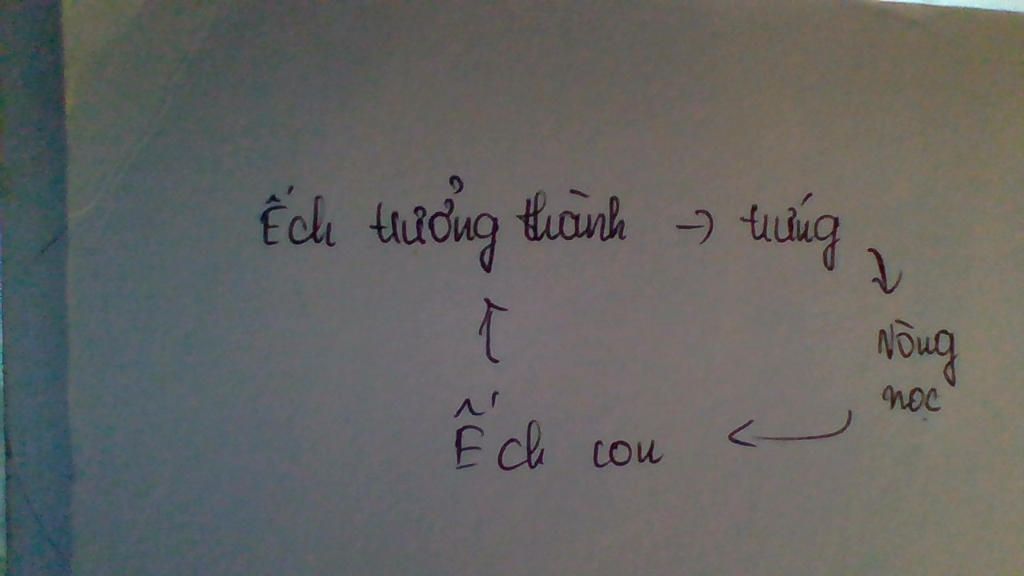 Ếch trưởng thành → trứng
Nòng
nọc
Ếch con